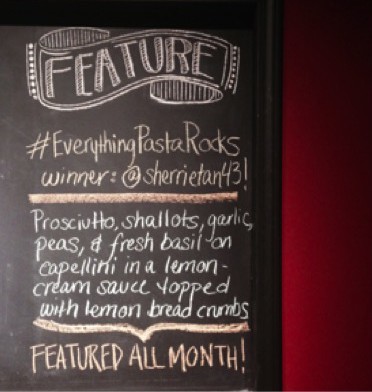 FEATURE
#EverythingPastaRocks
winner: @sherrietan43!
Prosciutto, shallots, garlic,
peas, & fresh basil on
capellini in a lemon-
cream sauce topped
with lemon bread crumbs
FEATURED ALL MONTH!